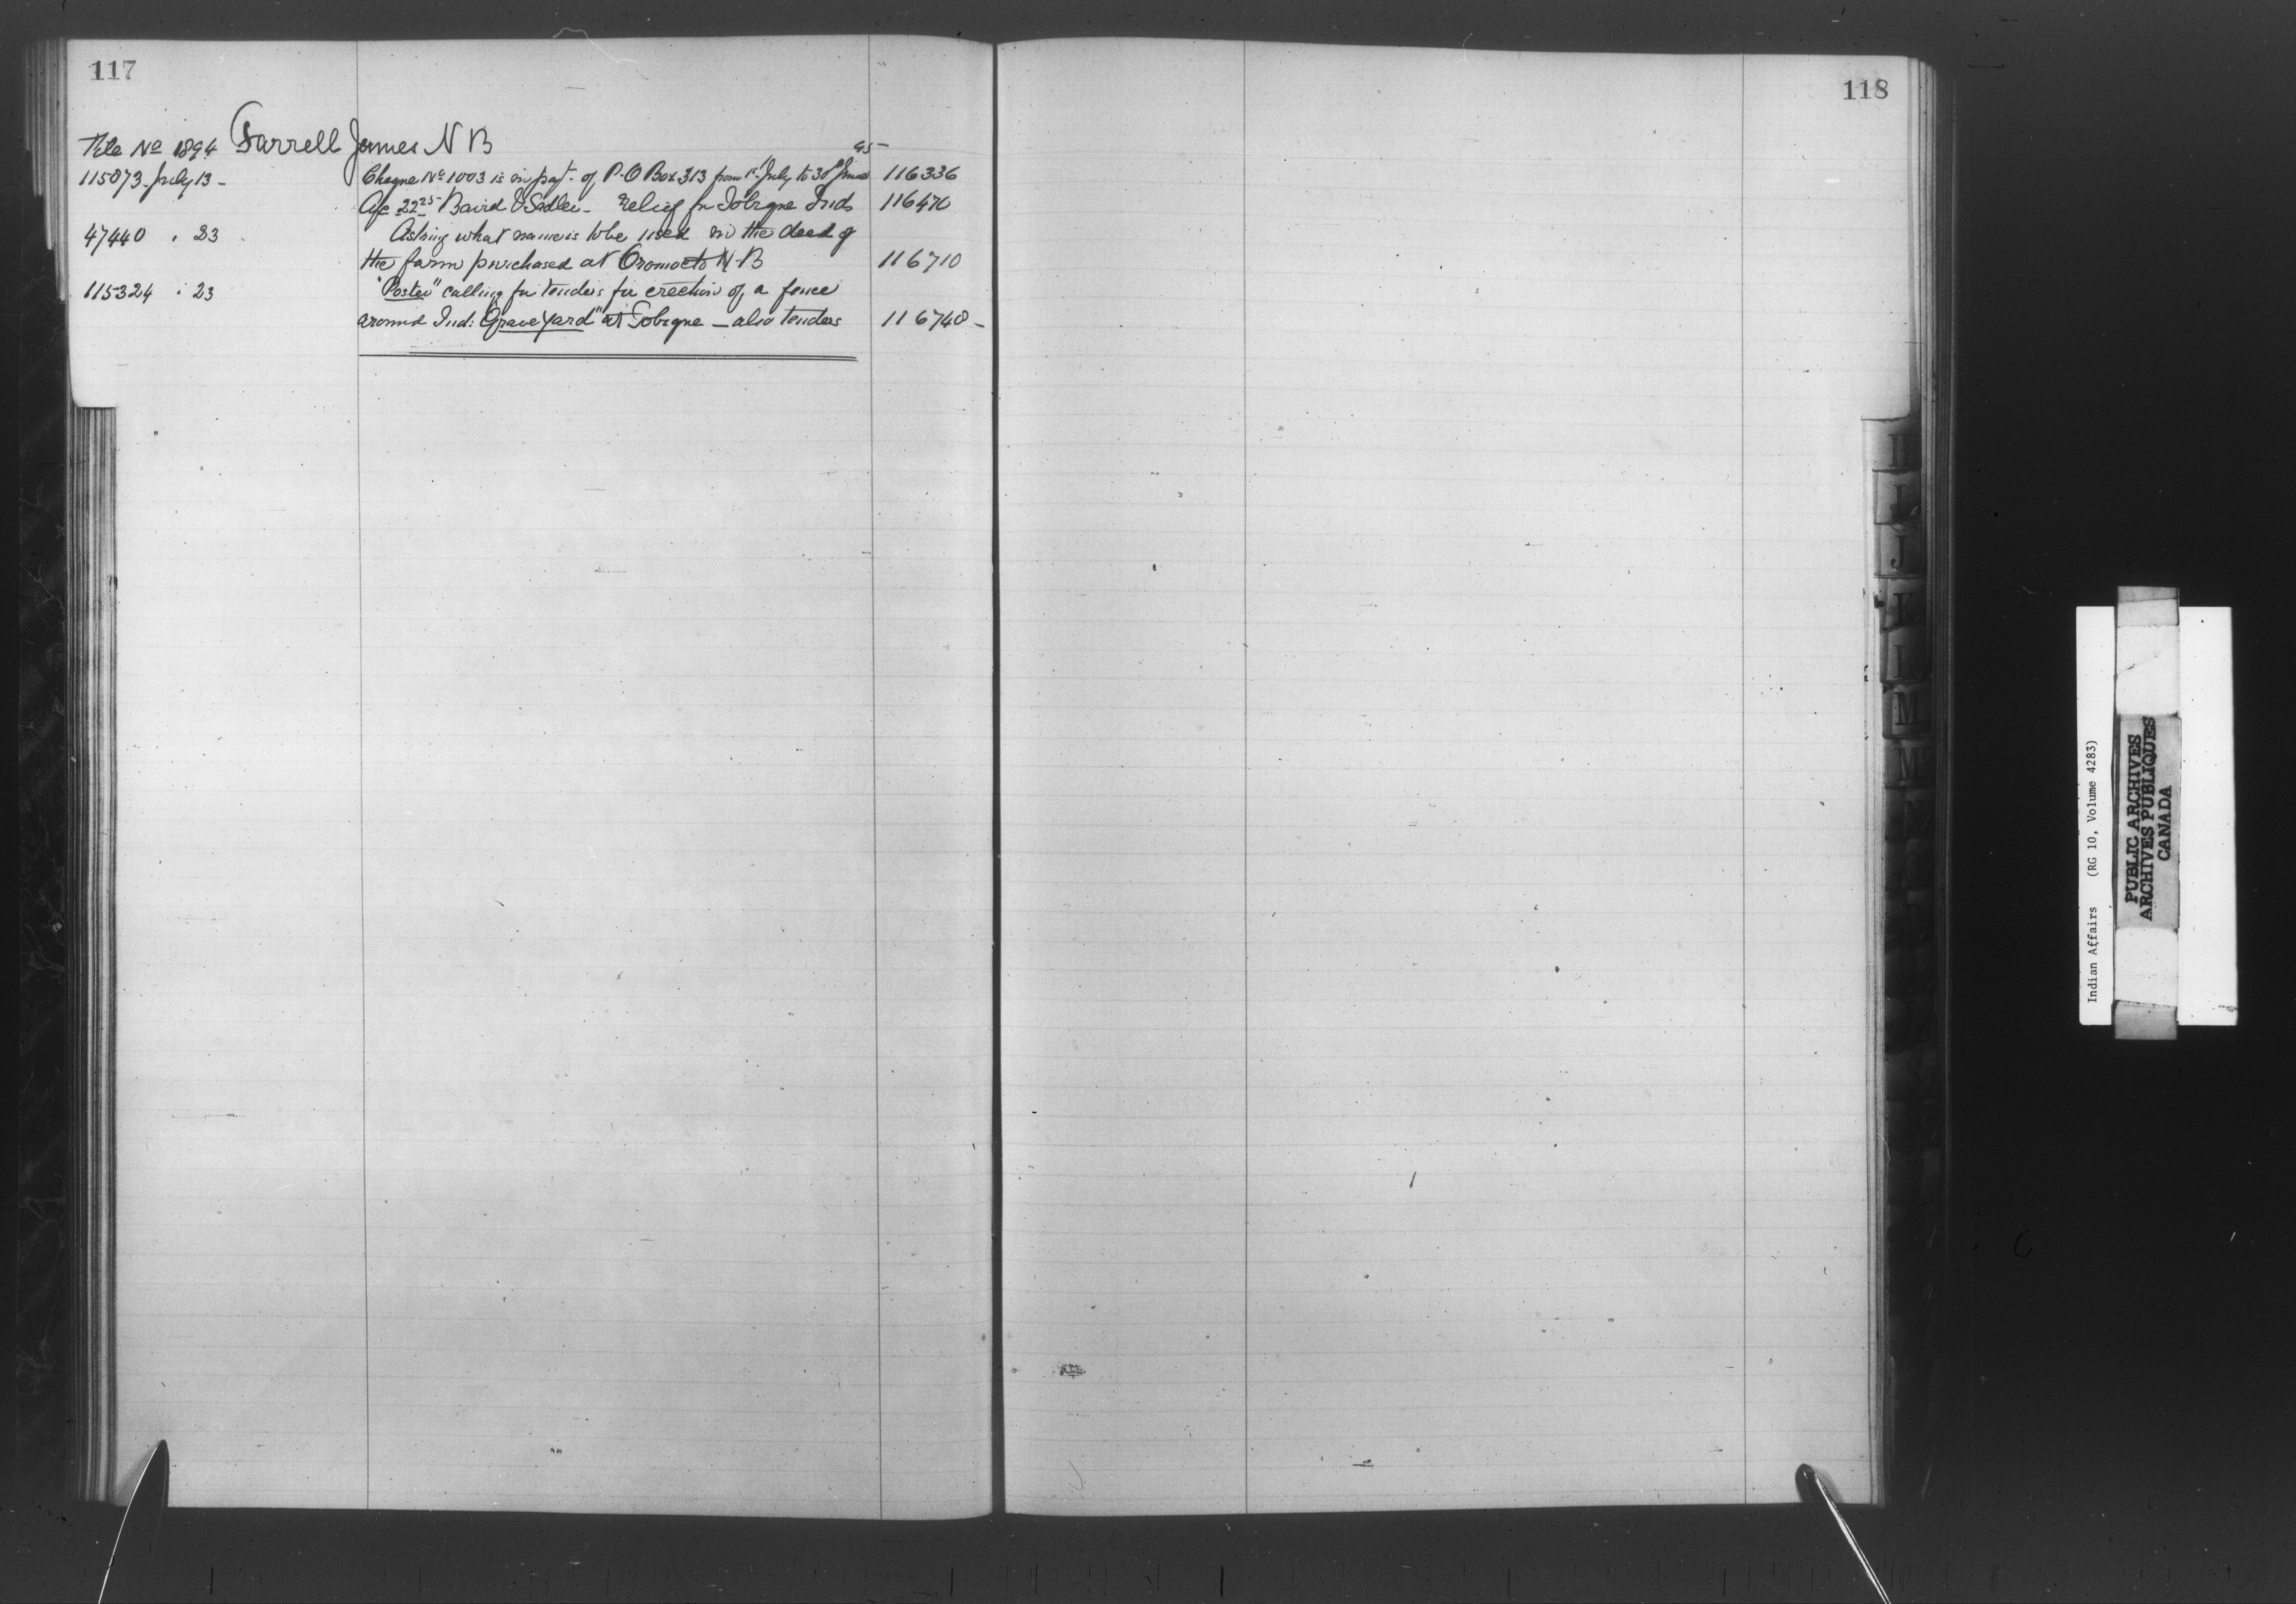 117
File No 1894 Farrell James N B
95-
115873 July 13 - Cheque No 1003 is in payt. of P.O Box 313 from 1st July to 30th June 116336
A/c 22.25 Baird & Sadler - Relief for Tobique Inds 116470
47440 . 23 Asking what name is to be used in the deed of
the farm purchased at Oromocto N B 116710
115324 . 23 "Poster" calling for tenders for erection of a fence
around Ind: Graveyard" at Tobique - also tenders 116740 -
118
I
J
L
M
M
Indian Affairs (RG 10, Volume 4283)
PUBLIC ARCHIVES
ARCHIVES PUBLIQUES
CANADA